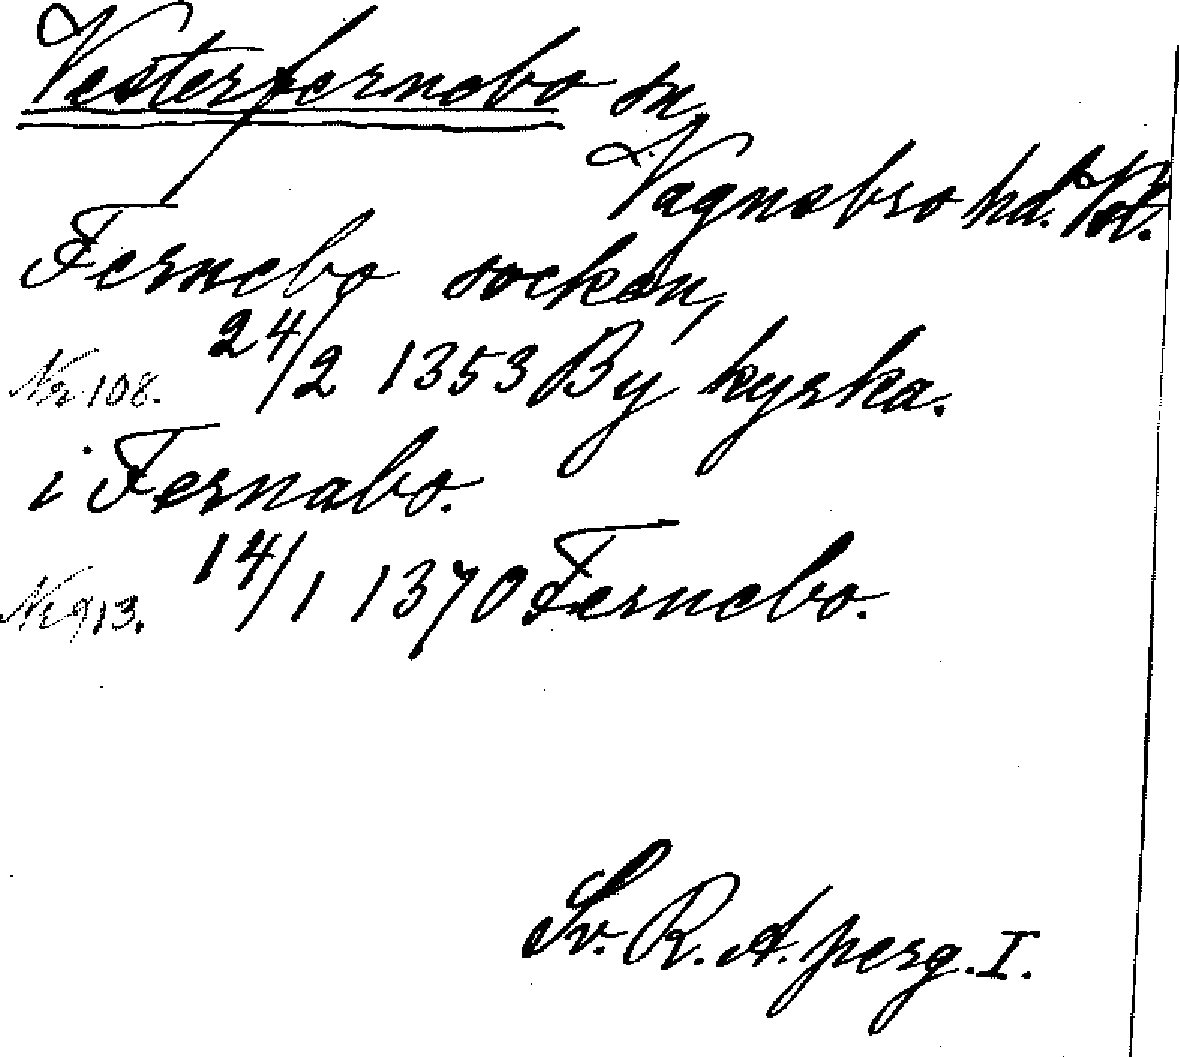 Vesterfernebo sn,
Vagnsbro hd. Vst.
Fernebo socken,
Nr. 108. 24/2 1353 By kyrka.
i Fernabo.
Nr 913. 14/1 1370 Fernebo.
Sv. R. A. perg. I.